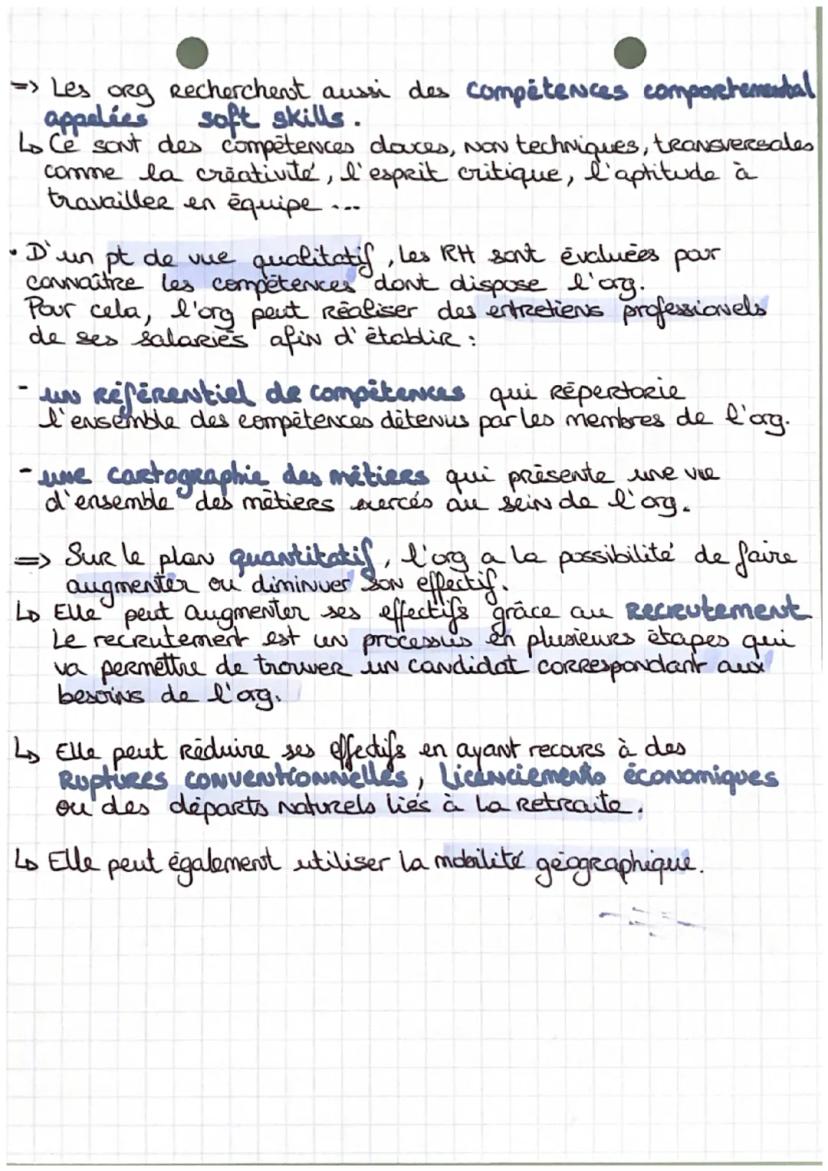 => Les org recherchent aussi des compétences comportemental
appelées soft skills.
↳ Ce sont des compétences douces, non techniques, transversales
comme la créativité, l'esprit critique, l'aptitude à
travailler en équipe ...
• D'un pt de vue qualitatif, les RH sont évaluées pour
connaître les compétences dont dispose l'org.
Pour cela, l'org peut réaliser des entretiens professionels
de ses salariés afin d'établir :
- un référentiel de compétences qui répertorie
l'ensemble des compétences détenus par les membres de l'org.
- une cartographie des métiers qui présente une vue
d'ensemble des métiers exercés au sein de l'org.
=> Sur le plan quantitatif, l'org a la possibilité de faire
augmenter ou diminuer son effectif.
↳ Elle peut augmenter ses effectifs grâce au recrutement
Le recrutement est un processus en plusieurs étapes qui
va permettre de trouver un candidat correspondant aux
besoins de l'org.
↳ Elle peut réduire ses effectifs en ayant recours à des
ruptures conventionnelles, licenciements économiques
ou des départs naturels liés à la retraite.
↳ Elle peut également utiliser la mobilité géographique.